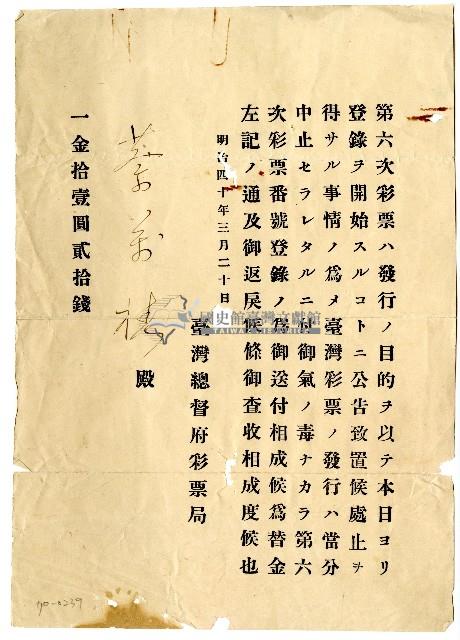 第六次彩票ハ發行ノ目的ヲ以テ本日ヨリ
登錄ヲ開始スルコトニ公告致置候處止ヲ
得サル事情ノ爲メ臺灣彩票ノ發行ハ當分
中止セラレタルニ付御氣ノ毒ナカラ第六
次彩票番號登錄ノ爲御送付相成候爲替金
左記ノ通及御返戻候條御査收相成度候也
明治四十年三月二十日
臺灣總督府彩票局
蔡萬 殿
一金拾壹圓貳拾錢
國史館臺灣文獻館
TAIWAN HISTORICA